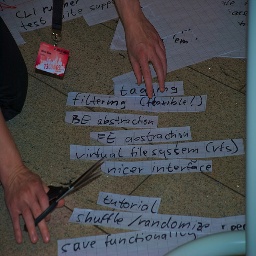 CLI runner
test suite
supp
'em
tagging
filtering (flexible!)
BE abstraction
FE abstraction
virtual filesystem (vfs)
nicer interface
tutorial
shuffle/randomize + per
save functionality